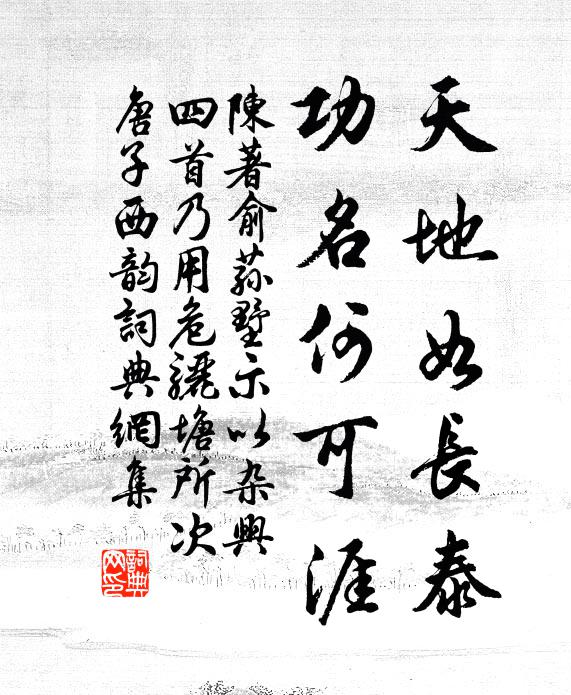 天地如長泰
功名何可涯
陳著俞荪墅示以杂興
四首乃用危驪塘所次
唐子西韵詞典網集